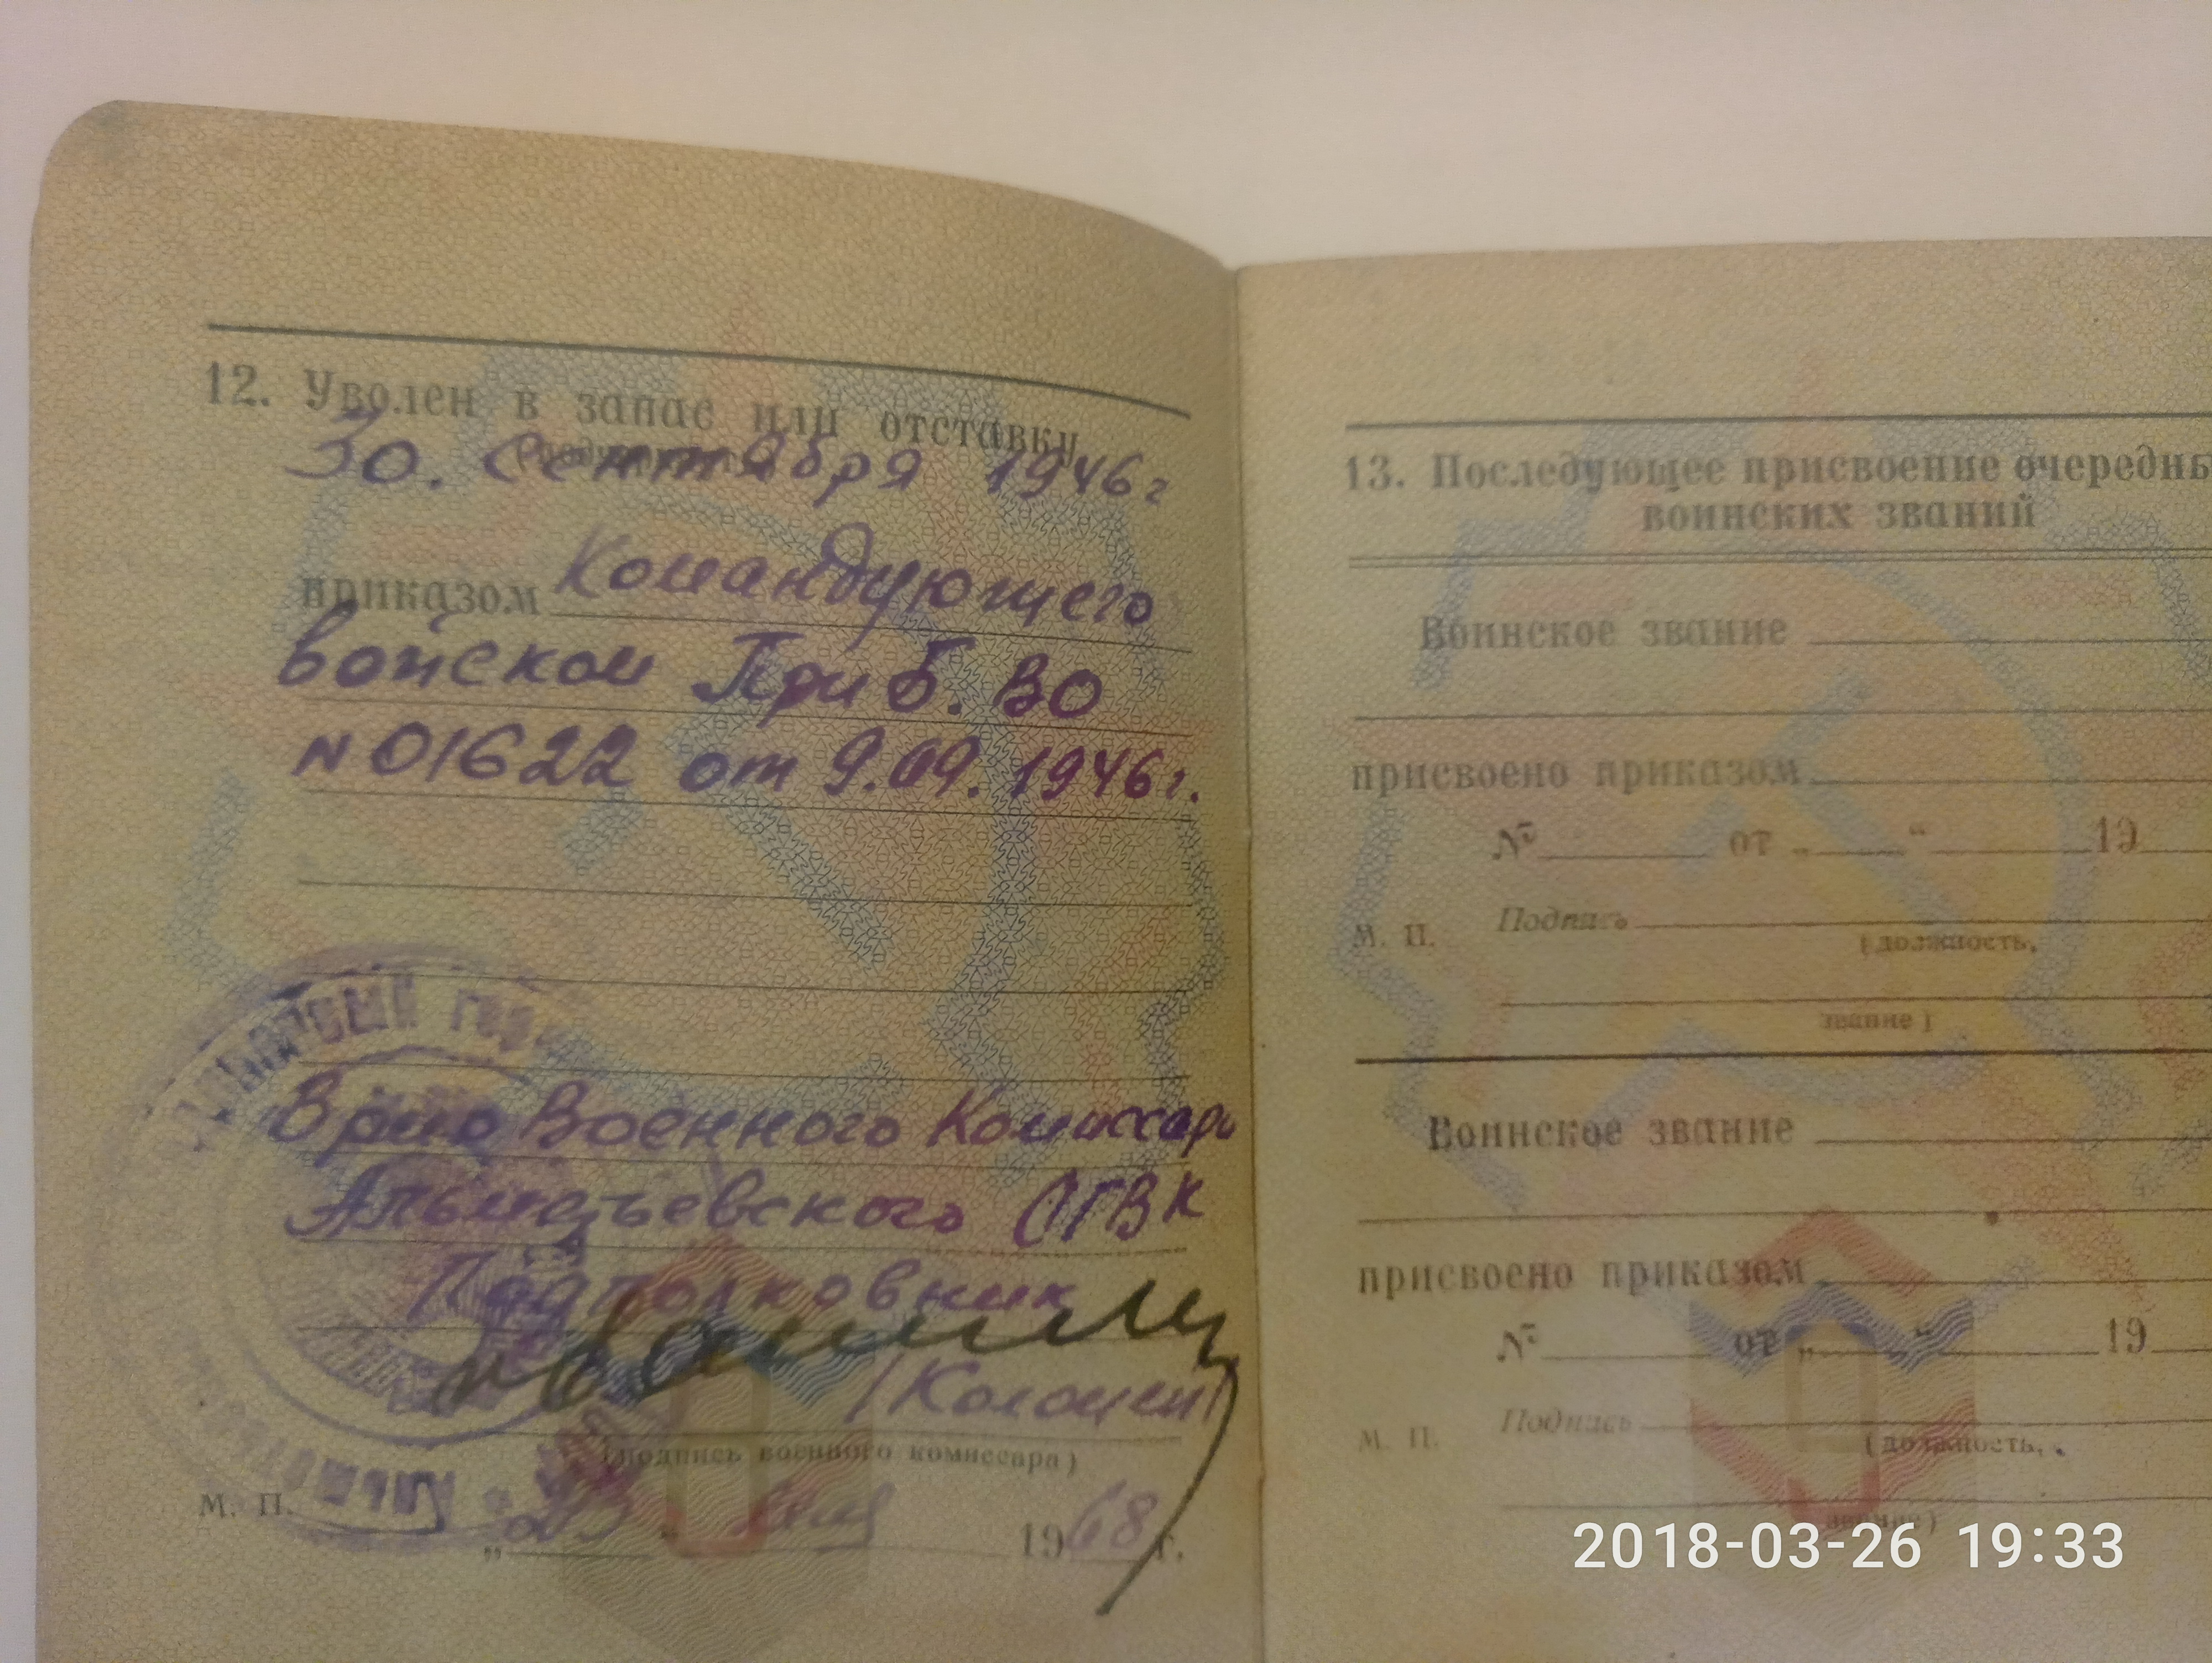 12. Уволен в запас или отставку
30. Сентября 1946 г
приказом Командующего
войскам Приб. ВО
N 01622 от 9.09.1946 г.
Врио Военного Комиссара
Альметьевского ОГВК
Подполковник
(подпись военного комиссара)
М. П.
„ “ 1968 г.
13. Последующее присвоение очередны
воинских званий
Воинское звание
присвоено приказом
№ от „ “ 19
М. П. Подпись
(должность,
звание)
Воинское звание
присвоено приказом
№ от „ “ 19
М. П. Подпись
(должность,
звание)
2018-03-26 19:33